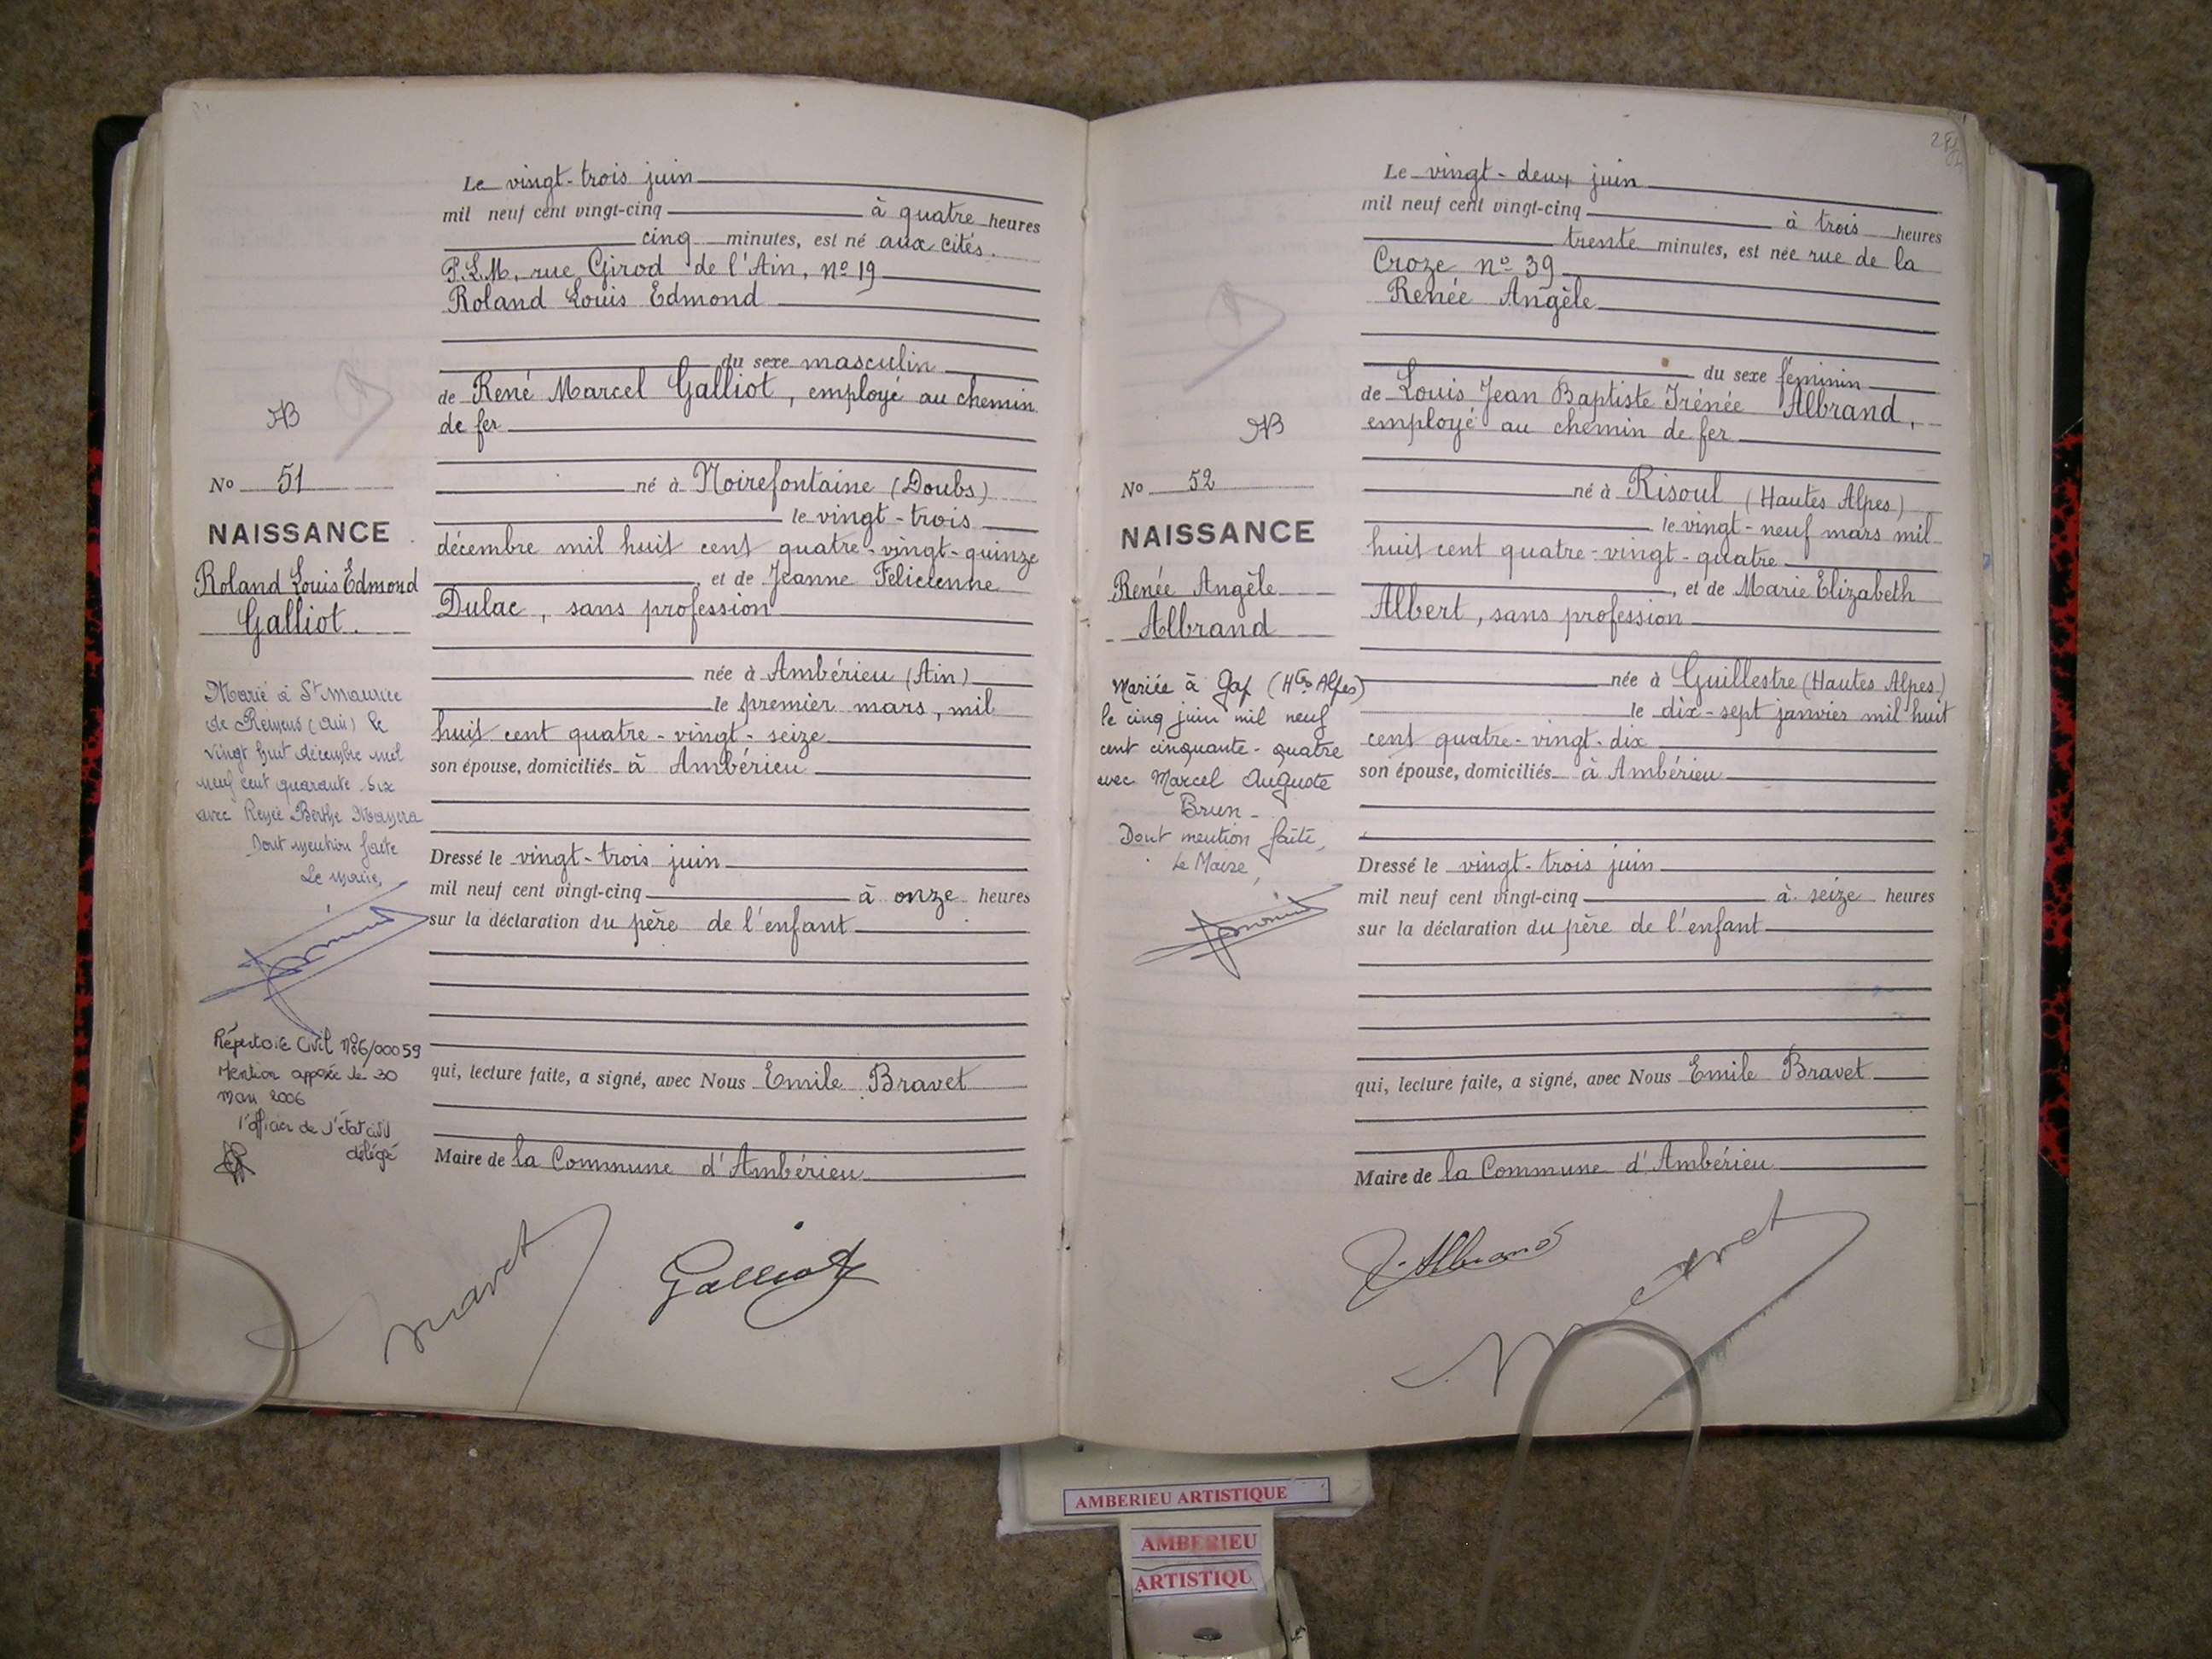 Le vingt-trois juin
mil neuf cent vingt-cinq à quatre heures
cinq minutes, est né aux cités
P.L.M. rue Girod de l'Ain, nº 19
Roland Louis Edmond
du sexe masculin
de René Marcel Galliot, employé au chemin
de fer
né à Noirefontaine (Doubs)
le vingt-trois
décembre mil huit cent quatre-vingt-quinze
, et de Jeanne Félicienne
Dulac, sans profession
née à Ambérieu (Ain)
le premier mars, mil
huit cent quatre-vingt-seize
son épouse, domiciliés à Ambérieu
Dressé le vingt-trois juin
mil neuf cent vingt-cinq à onze heures
sur la déclaration du père de l'enfant
qui, lecture faite, a signé, avec Nous Emile Bravet
Maire de la Commune d'Ambérieu
Galliot
AB
No 51
NAISSANCE
Roland Louis Edmond
Galliot.
Marié à St Maurice
de Rémens (Ain) le
vingt huit décembre mil
neuf cent quarante six
avec Renée Berthe
Dont mention faite
Le Maire,
Répertoire Civil Nº 6/00059
Mention apposée le 30
2006
l'officier de l'état civil
délégué
Le vingt-deux juin
mil neuf cent vingt-cinq à trois heures
trente minutes, est née rue de la
Croze nº 39
Renée Angèle
du sexe féminin
de Louis Jean Baptiste Irénée Albrand,
employé au chemin de fer
né à Risoul (Hautes Alpes)
le vingt-neuf mars mil
huit cent quatre-vingt-quatre
, et de Marie Elizabeth
Albert, sans profession
née à Guillestre (Hautes Alpes)
le dix-sept janvier mil huit
cent quatre-vingt-dix
son épouse, domiciliés à Ambérieu
Dressé le vingt-trois juin
mil neuf cent vingt-cinq à seize heures
sur la déclaration du père de l'enfant
qui, lecture faite, a signé, avec Nous Emile Bravet
Maire de la Commune d'Ambérieu
Albrand
AB
No 52
NAISSANCE
Renée Angèle
Albrand
Mariée à Gap (Htes Alpes)
le cinq juin mil neuf
cent cinquante-quatre
avec Marcel Auguste
Brun -
Dont mention faite,
Le Maire,
AMBERIEU ARTISTIQUE
AMBERIEU
ARTISTIQU